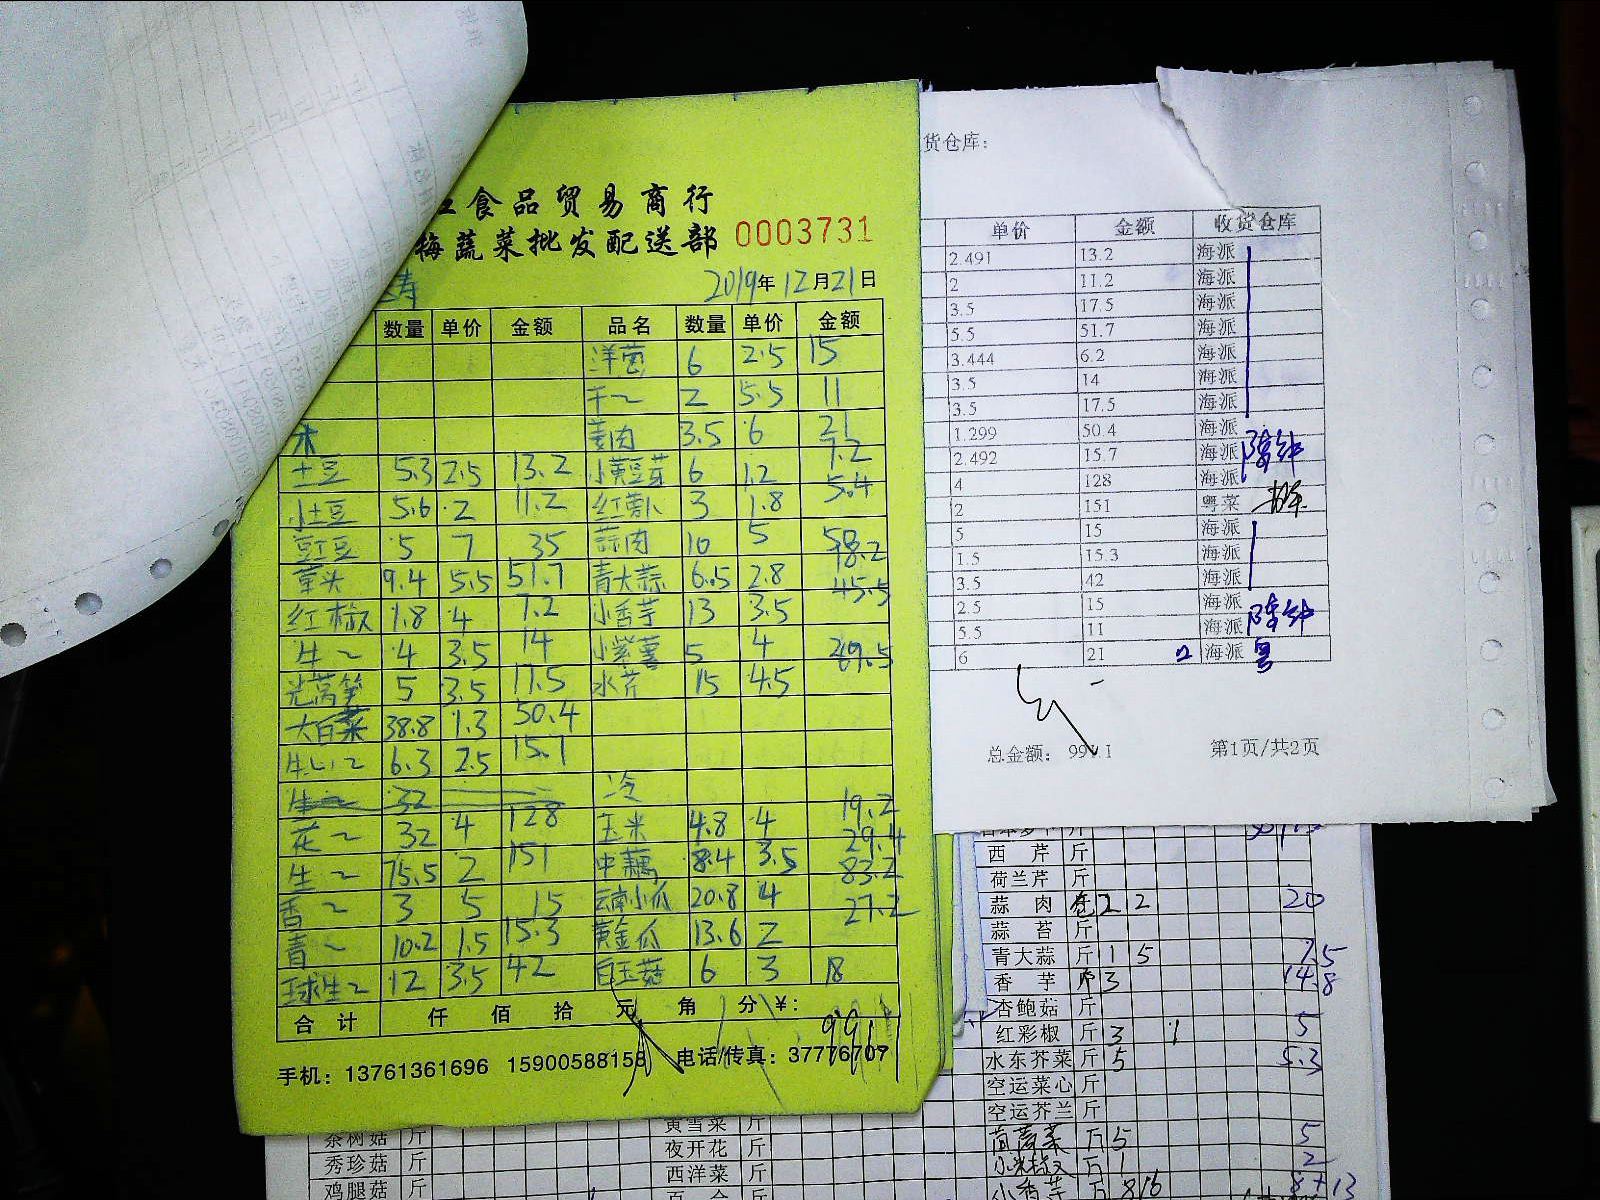 食品贸易商行
梅蔬菜批发配送部 0003731
2019年12月21日
数量 单价 金额 品名 数量 单价 金额
洋葱 6 2.5 15
干~ 2 5.5 11
木 姜肉 3.5 6 21
土豆 5.3 2.5 13.2 小黄豆芽 6 1.2 7.2
小土豆 5.6 2 11.2 红萝卜 3 1.8 5.4
豇豆 5 7 35 蒜肉 10 5 50
茸头 9.4 5.5 51.7 青大蒜 6.5 2.8 18.2
红椒 1.8 4 7.2 小香芋 13 3.5 45.5
牛~ 4 3.5 14 小紫薯 5 4
光莴笋 5 3.5 17.5 水芹 15 4.5
大白菜 38.8 1.3 50.4
牛心~ 6.3 2.5 15.7
生~ 32 冷
花~ 32 4 128 玉米 4.8 4 19.2
生~ 75.5 2 151 中藕 8.4 3.5 29.4
香~ 3 5 15 云南小瓜 20.8 4 83.2
青~ 10.2 1.5 15.3 黄金瓜 13.6 2 27.2
球生~ 12 3.5 42 白玉菇 6 3 18
合计 仟 佰 拾 元 角 分 ¥:
手机：13761361696 15900588158 电话/传真：37776707
货仓库：
单价 金额 收货仓库
2.491 13.2 海派
2 11.2 海派
3.5 17.5 海派
5.5 51.7 海派
3.444 6.2 海派
3.5 14 海派
3.5 17.5 海派
1.299 50.4 海派
2.492 15.7 海派
4 128 海派
2 151 粤菜
5 15 海派
1.5 15.3 海派
3.5 42 海派
2.5 15 海派
5.5 11 海派
6 21 海派 粤
总金额： 第1页/共2页
西芹 斤
荷兰芹 斤
蒜肉 2 2 20
蒜苔 斤
青大蒜 斤 1 5 7.5
香芋 斤 3 14.8
杏鲍菇 斤
红彩椒 斤 3 1 5
水东芥菜 斤 5 5.3
空运菜心 斤
空运芥兰 斤
茼蒿菜 斤 5 5
小米椒 斤 1 2
小香芋 斤 8 16 8+13
茶树菇 斤
秀珍菇 斤
鸡腿菇 斤
黄雪菜 斤
夜开花 斤
西洋菜 斤